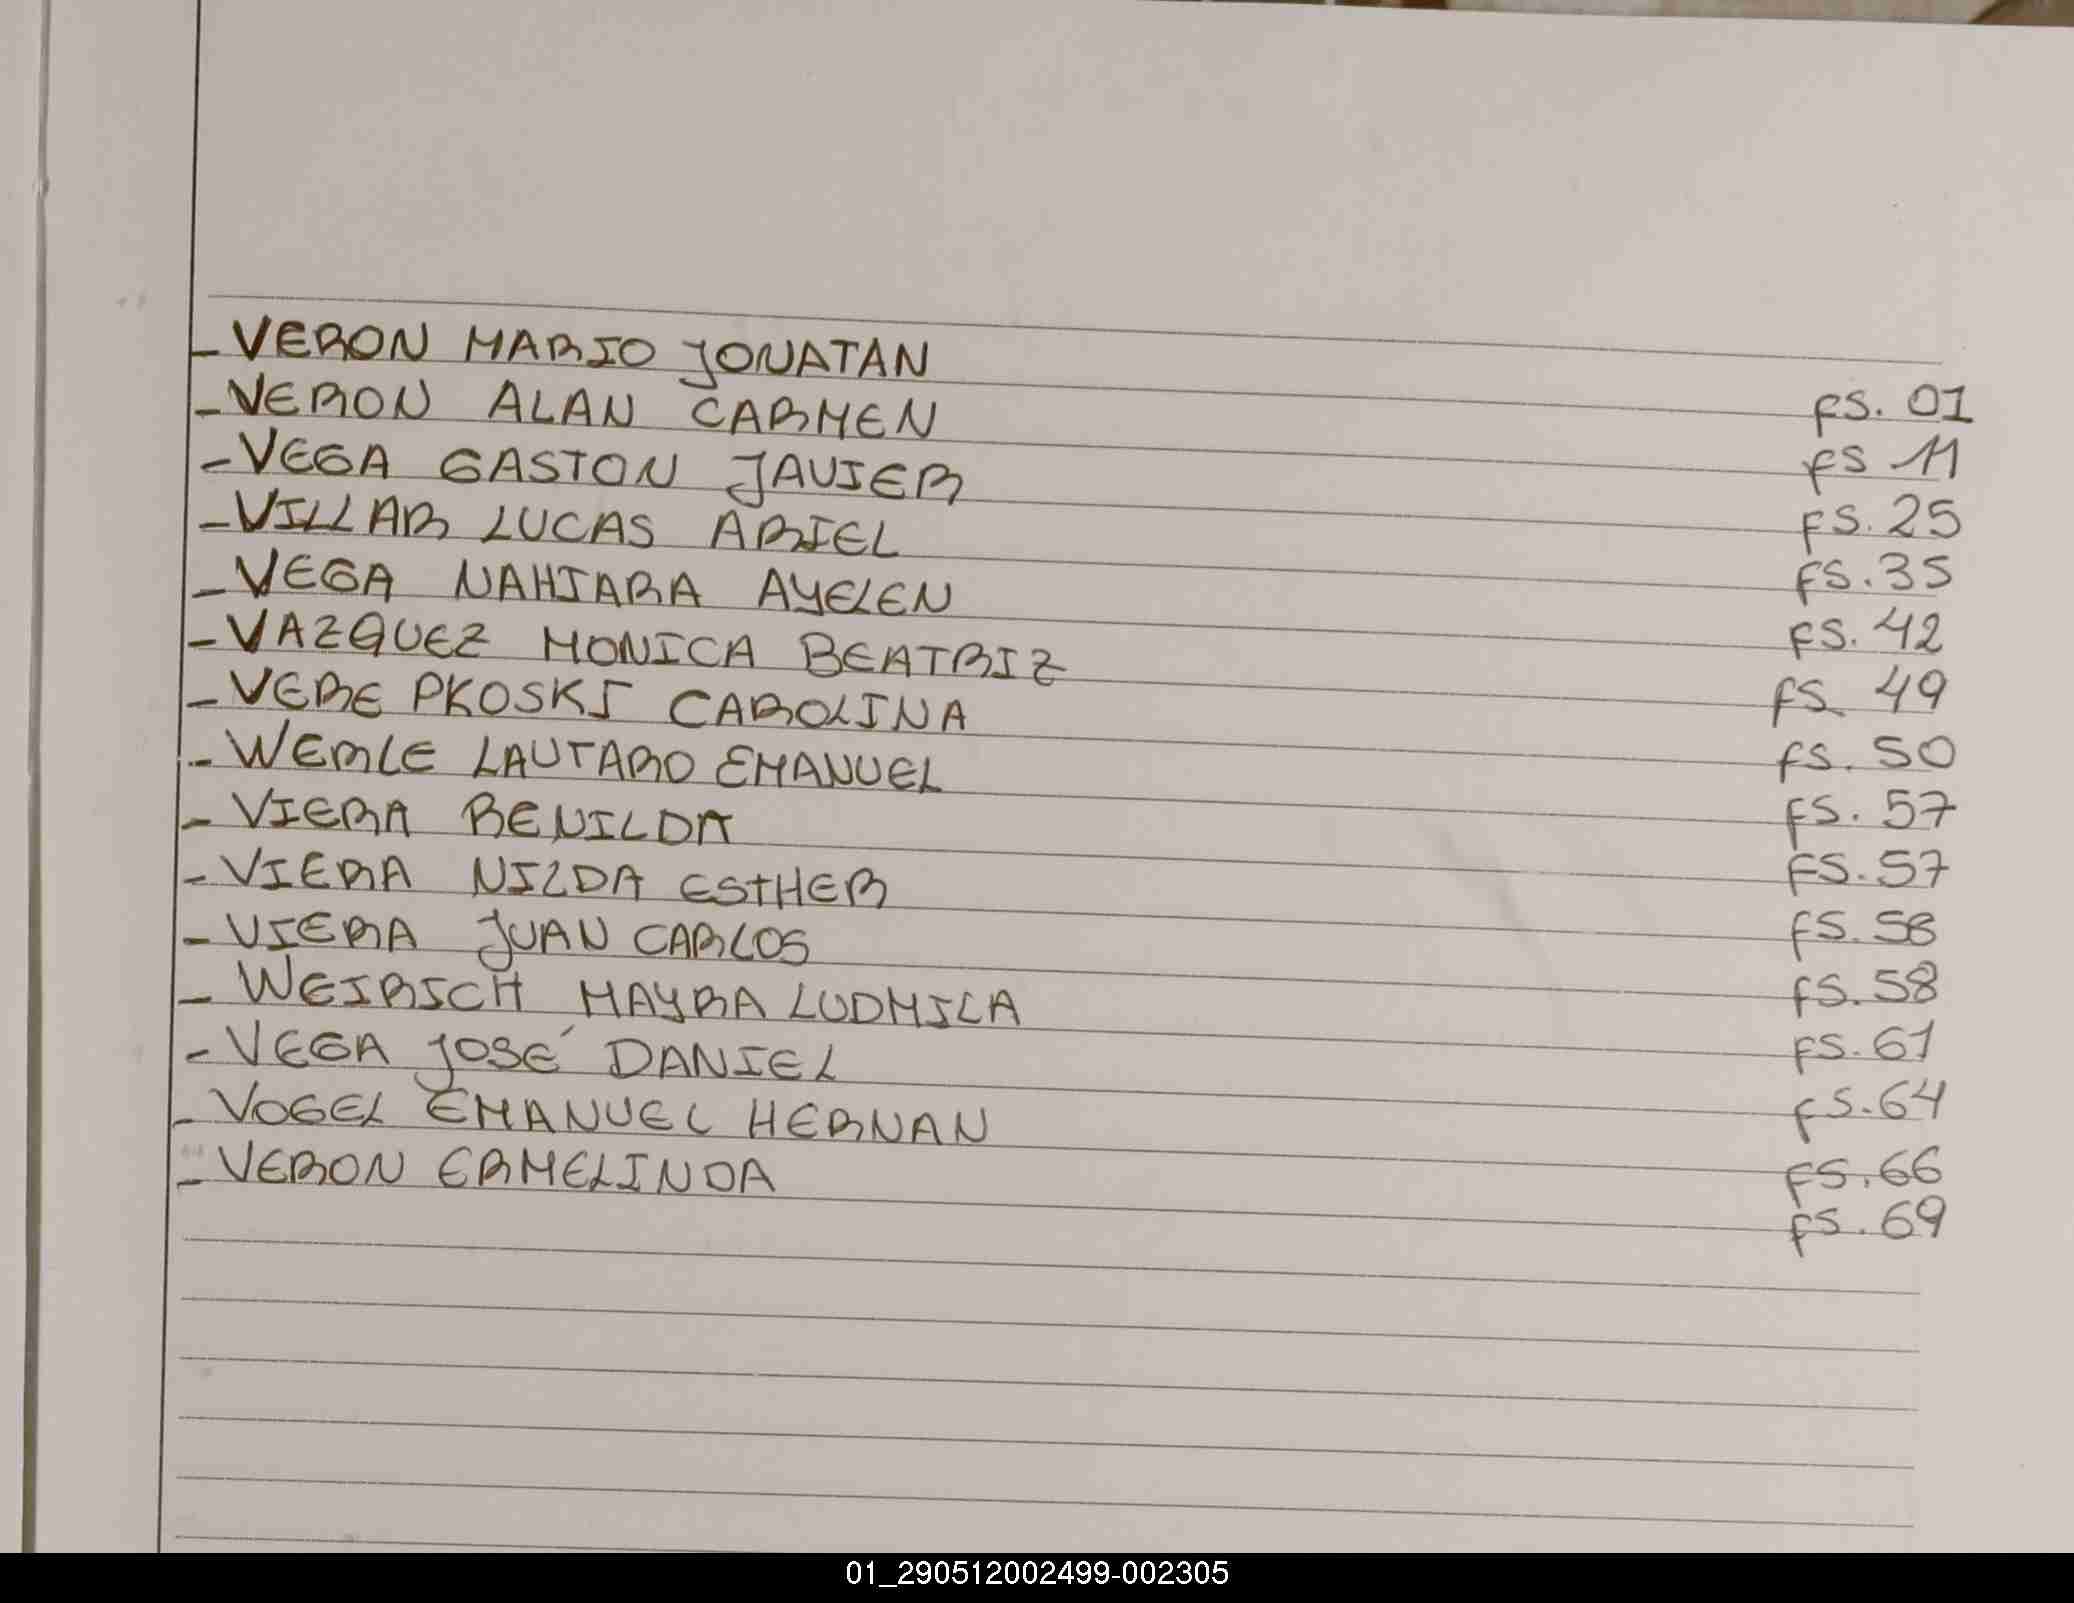 - VERON MARIO JONATAN fs. 01
- VERON ALAN CARMEN fs 11
- VEGA GASTON JAVIER fs. 25
- VILLAR LUCAS ARIEL fs. 35
- VEGA NAHIARA AYELEN fs. 42
- VAZQUEZ MONICA BEATRIZ fs. 49
- VERE PKOSKI CAROLINA fs. 50
- WERLE LAUTARO EMANUEL fs. 57
- VIERA BENILDA fs. 57
- VIERA NILDA ESTHER fs. 58
- VIERA JUAN CARLOS fs. 58
- WEIRICH MAYRA LUDMILA fs. 61
- VEGA JOSÉ DANIEL fs. 64
- VOGEL EMANUEL HERNAN fs. 66
- VERON ERMELINDA fs. 69
01_290512002499-002305